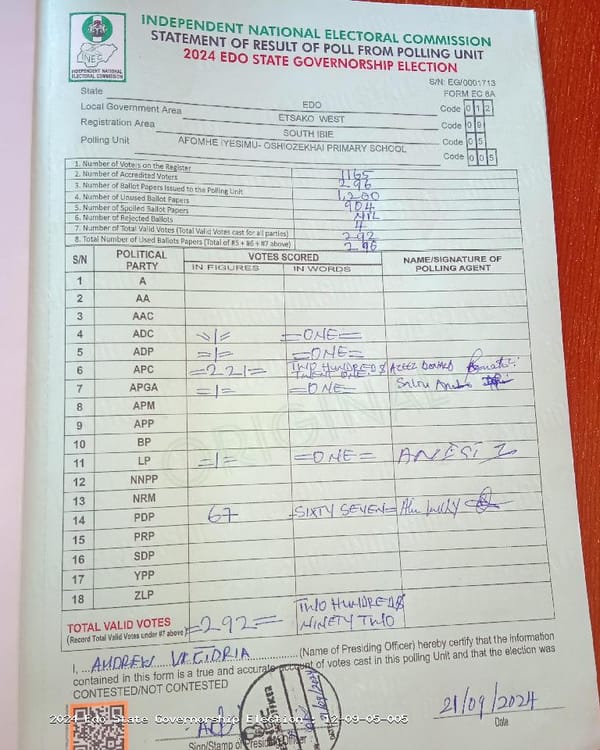 INDEPENDENT NATIONAL ELECTORAL COMMISSION
STATEMENT OF RESULT OF POLL FROM POLLING UNIT
2024 EDO STATE GOVERNORSHIP ELECTION
INEC
INDEPENDENT NATIONAL ELECTORAL COMMISSION
S/N: EG/0001713
FORM EC 8A
State EDO Code 012
Local Government Area ETSAKO WEST Code 09
Registration Area SOUTH IBIE Code 05
Polling Unit AFOMHE IYESIMU- OSHIOZEKHAI PRIMARY SCHOOL Code 005
1. Number of Voters on the Register 1165
2. Number of Accredited Voters 296
3. Number of Ballot Papers Issued to the Polling Unit 1,200
4. Number of Unused Ballot Papers 904
5. Number of Spoiled Ballot Papers NIL
6. Number of Rejected Ballots 4
7. Number of Total Valid Votes (Total Valid Votes cast for all parties) 292
8. Total Number of Used Ballots Papers (Total of #5 + #6 + #7 above) 296
S/N POLITICAL PARTY VOTES SCORED NAME/SIGNATURE OF POLLING AGENT
IN FIGURES IN WORDS
1 A
2 AA
3 AAC
4 ADC =1= =ONE=
5 ADP =1= =ONE=
6 APC =221= TWO HUNDRED & TWENT ONE AZEEZ DONALD
7 APGA =1= =ONE=
8 APM
9 APP
10 BP
11 LP =1= =ONE=
12 NNPP
13 NRM
14 PDP 67 =SIXTY SEVEN=
15 PRP
16 SDP
17 YPP
18 ZLP
ORIGINAL
TOTAL VALID VOTES =292= TWO HUNDRED & NINETY TWO
(Record Total Valid Votes under #7 above)
I, ANDREW (Name of Presiding Officer) hereby certify that the information
contained in this form is a true and accurate account of votes cast in this polling Unit and that the election was
CONTESTED/NOT CONTESTED
21/09/2024
2024 Edo State Governorship Election - 12-09-05-005
Sign/Stamp of Presiding Officer Date